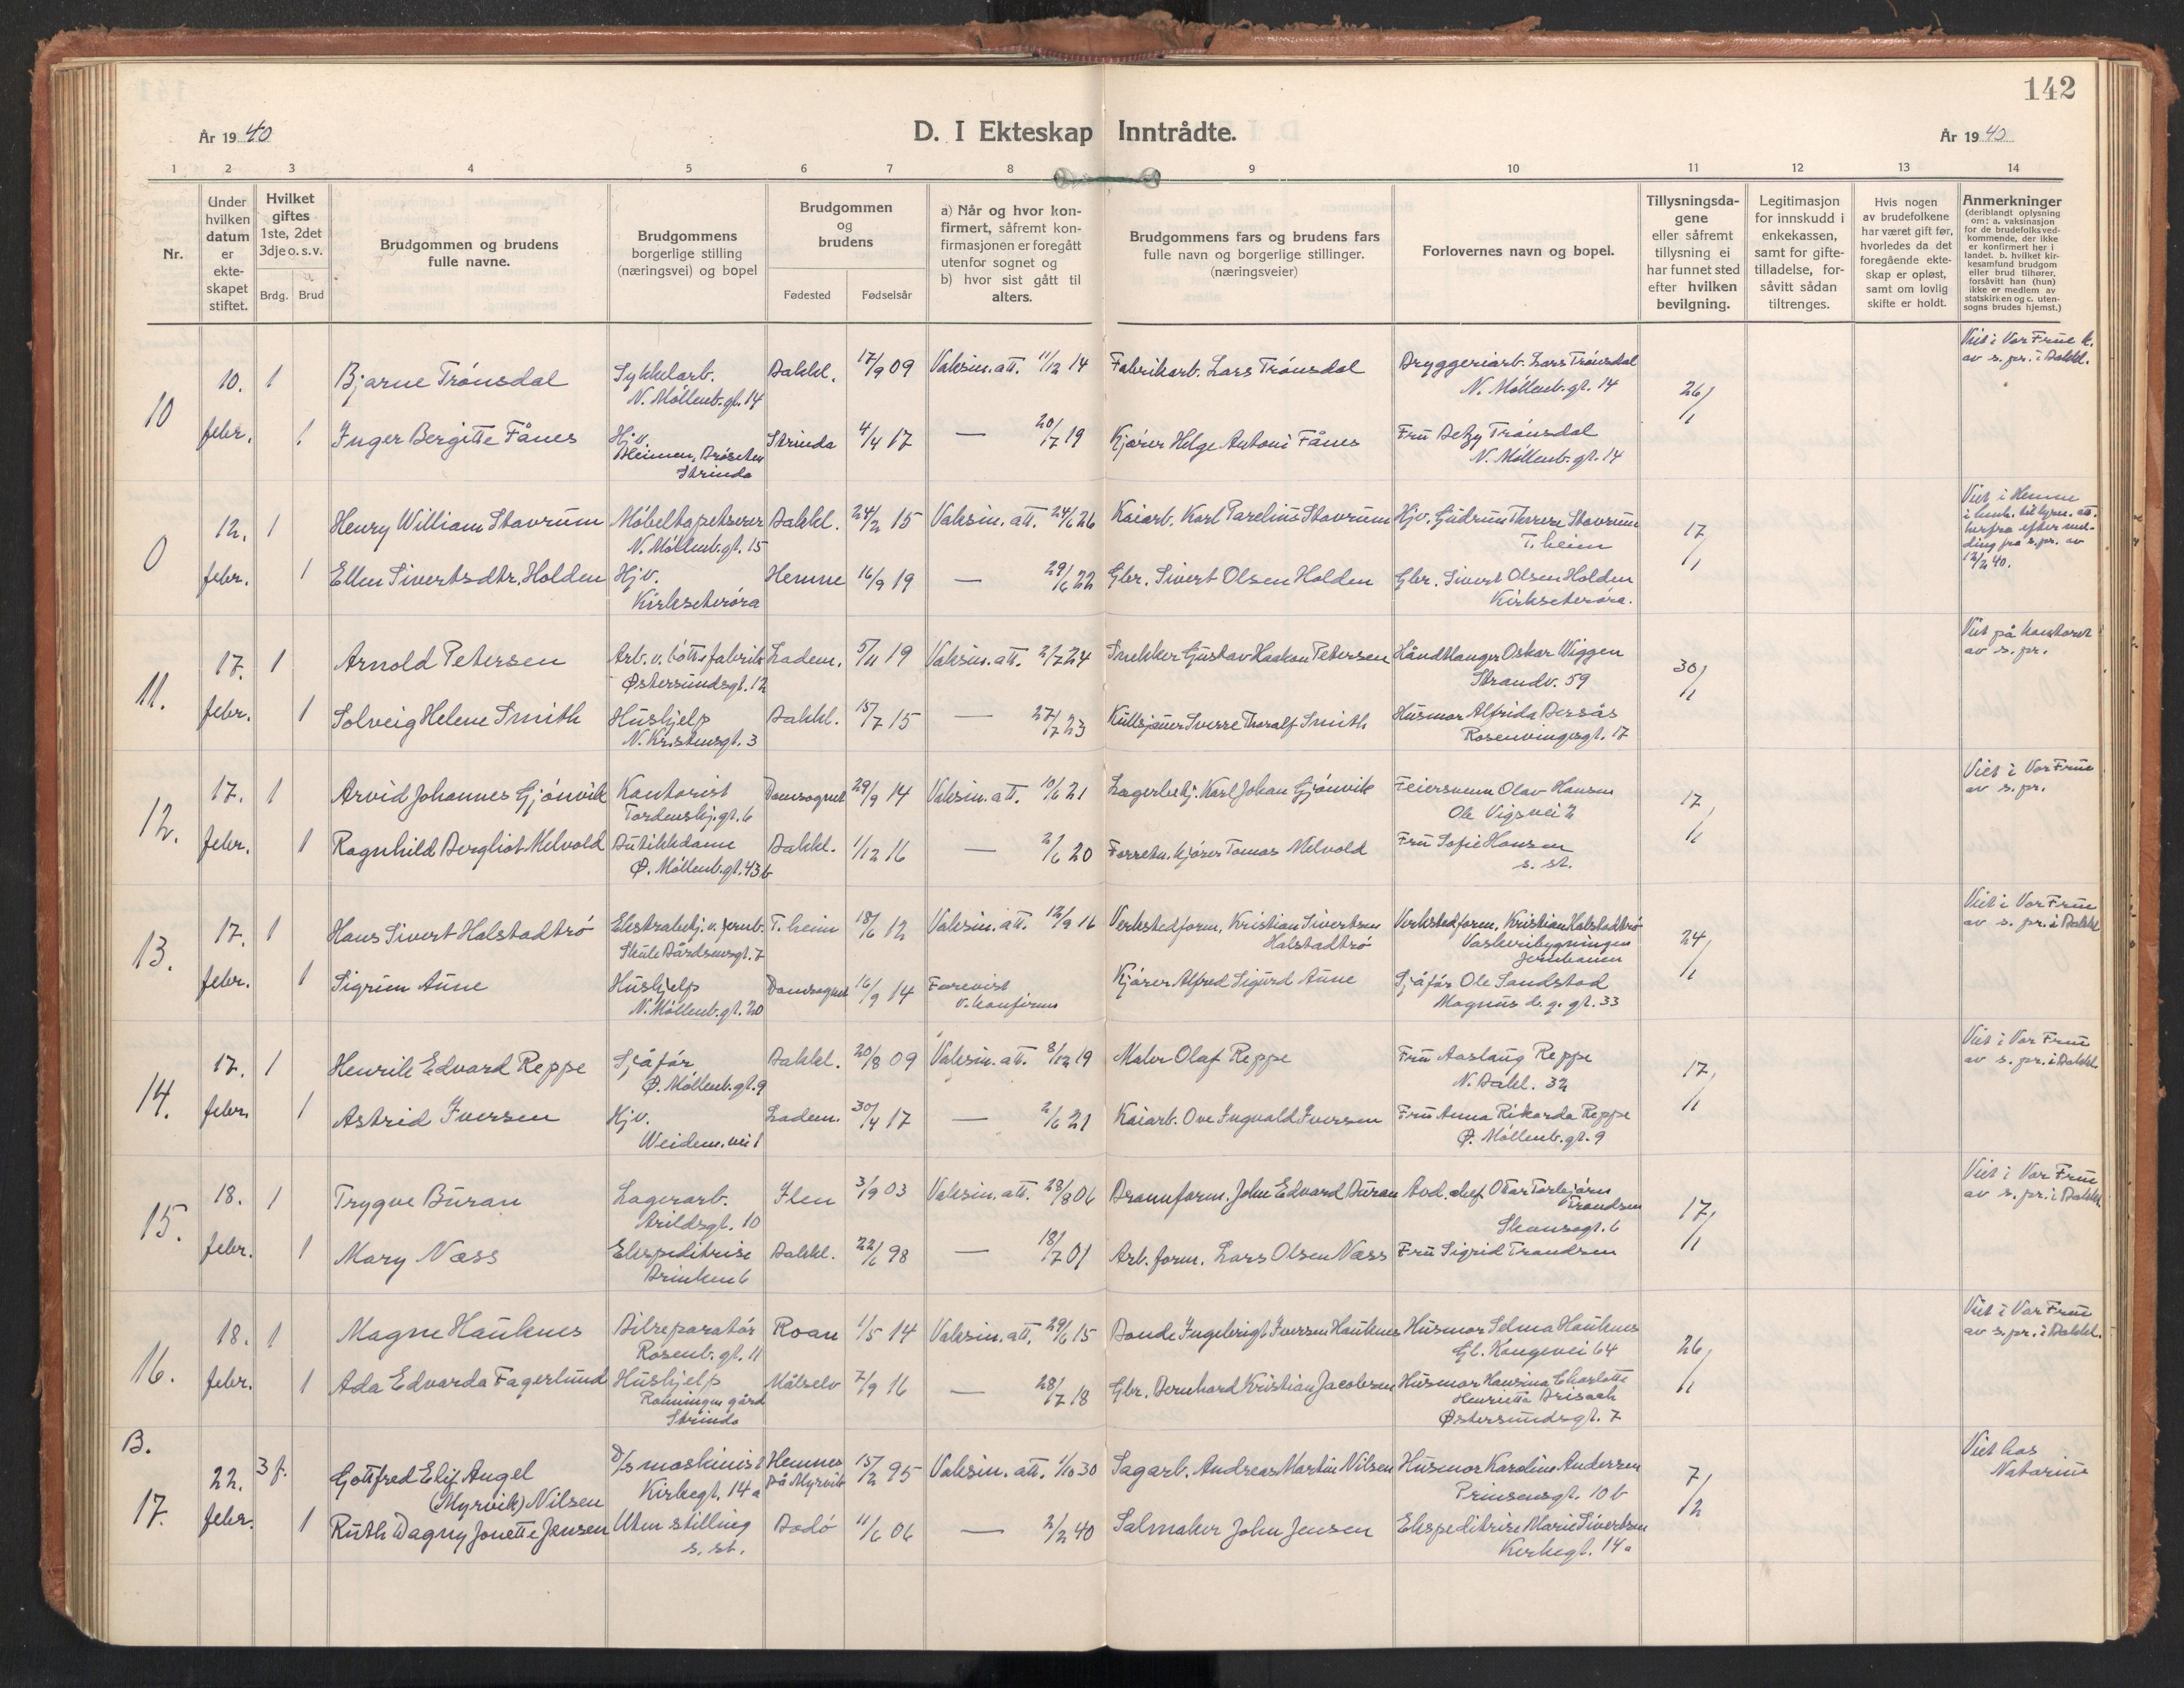 142
År 1940
D. I Ekteskap Inntrådte.
År 1940
1 2 3 4 5 6 7 8 9 10 11 12 13 14
Nr.
Under hvilken datum er ekte-skapet stiftet.
Hvilket giftes 1ste, 2det 3dje o. s. v.
Brdg. Brud
Brudgommen og brudens fulle navne.
Brudgommens borgerlige stilling (næringsvei) og bopel
Brudgommen og brudens
Fødested Fødselsår
a) Når og hvor kon-firmert, såfremt kon-firmasjonen er foregått utenfor sognet og b) hvor sist gått til alters.
Brudgommens fars og brudens fars fulle navn og borgerlige stillinger. (næringsveier)
Forlovernes navn og bopel.
Tillysningsda-gene eller såfremt tillysning ei har funnet sted efter hvilken bevilgning.
Legitimasjon for innskudd i enkekassen, samt for gifte-tilladelse, for-såvitt sådan tiltrenges.
Hvis nogen av brudefolkene har været gift før, hvorledes da det foregående ekte-skap er opløst, samt om lovlig skifte er holdt.
Anmerkninger (deriblandt oplysning om: a. vaksinasjon for de brudefolks ved-kommende, der ikke er konfirmert her i landet. b. hvilket kir-kesamfund brudgom eller brud tilhører, forsåvitt han (hun) ikke er medlem av statskirken og c. uten-sogns brudes hjemst.)
10 10. 1 Bjarne Trønsdal Sykkelarb. Bakkl. 17/9 09 Vaksin. att. 11/12 14 Fabrikarb. Lars Trønsdal Bryggeriarb. Lars Trønsdal 26/1 Viet i Vor Frue k.
N. Møllenb. gt. 14 N. Møllenb. gt. 14 av s. pr. i Bakkl.
febr. 1 Inger Bergitte Fånes Hjv. Strinda 4/4 17 — 20/7 19 Kjører Helge Antoni Fånes Fru Betzy Trønsdal
Heimen, Brøseten N. Møllenb. gt. 14
Strinda
0 12. 1 Henry William Stavrum Møbeltapetserer Bakkl. 24/2 15 Vaksin. att. 24/6 26 Kaiarb. Karl Parelius Stavrum Hjv. Gudrun Therese Stavrum 17/1 Viet i Hemne
N. Møllenb. gt. 15 T.heim
febr. 1 Ellen Sivertsdtr. Holden Hjv. Hemne 16/9 19 — 29/6 22 Gbr. Sivert Olsen Holden Gbr. Sivert Olsen Holden 12/2 40.
Kirkseterøra Kirkseterøra.
11. 17. 1 Arnold Petersen Arb. v. bøttefabrik Ladem. 5/11 19 Vaksin. att. 2/7 24 Snekker Gustav Haakon Petersen Håndtlanger Oskar Wiggen 30/1 Viet på kontoret
Østersundsgt. 12 Strandv. 59 av s. pr.
febr. 1 Solveig Helene Smith Hushjelp Bakkl. 15/7 15 — 27/7 23 Kullsjauer Sverre Thoralf Smith Husmor Alfrida Bersås
N. Kristensgt. 3 Rosenvingesgt. 17
12. 17. 1 Arvid Johannes Gjønvik Kontorist Domsognet 29/9 14 Vaksin. att. 10/6 21 Lagerbetj. Karl Johan Gjønvik Feiersvenn Olav Hansen 17/1 Viet i Vor Frue
Tordenskj. gt. 6 Ole Vigsvei 2 av s. pr.
febr. 1 Ragnhild Bergliot Melvold Butikkdame Bakkl. 1/12 16 — 2/6 20 Forretn. kjører Tomas Melvold Fru Sofie Hansen
Ø. Møllenb. gt. 43 b s. st.
13. 17. 1 Hans Sivert Halstadtrø Ekstrabetj. v. jernb. T.heim 18/6 12 Vaksin. att. 12/9 16 Verkstedform. Kristian Sivertsen Verkstedform. Kristian Halstadtrø 24/1 Viet i Vor Frue
Skule Bårdsensgt. 7 Halstadtrø Vaskeribygningen av s. pr. i Bakkl
febr. 1 Sigrun Aune Hushjelp Domsognet 16/9 14 Forevist Kjører Alfred Sigurd Aune Sjåfør Ole Sandstad
N. Møllenb. gt. 20 v. konfirm Magnus d. g. gt. 33
14. 17. 1 Henrik Edvard Reppe Sjåfør Bakkl. 20/8 09 Vaksin. att. 8/12 19 Maler Olaf Reppe Fru Aaslaug Reppe 17/1 Viet i Vor Frue
Ø. Møllenb. gt. 9 N. Bakl. 32 av s. pr. i Bakkl.
febr. 1 Astrid Iversen Hjv. Ladem. 30/4 17 — 2/6 21 Kaiarb. Ove Ingvald Iversen Fru Anna Rikarda Reppe
Weidem. vei 1 Ø. Møllenb. gt. 9
15. 18. 1 Trygve Buran Lagerarb. Ilen 3/9 03 Vaksin. att. 28/8 06 Brannform. John Edvard Buran Avd. chef Ottar Torbjørn 17/1 Viet i Vor Frue
Arildsgt. 10 Trondsen av s. pr. i Bakkl
Skansegt. 6
febr. 1 Mary Næss Ekspeditrise Bakkl. 22/6 98 — 18/7 01 Arb. form. Lars Olsen Næss Fru Sigrid Trondsen
Brinken 6
16. 18. 1 Magne Hauknes Bilreparatør Roan 1/5 14 Vaksin. att. 29/6 15 Bonde Ingebrigt Iversen Hauknes Husmor Selma Hauknes 26/1 Viet i Vor Frue
Rosenb. gt. 11 Gl. Kongevei 64 av s. pr. i Bakkl.
febr. 1 Ada Edvarda Fagerlund Hushjelp Målselv 7/9 16 — 28/7 18 Gbr. Bernhard Kristian Jacobsen Husmor Hansina Charlotte
Rønningen gård Henriette Brisach
Strinda Østersundsgt. 7
B.
17. 22. 3 f. Gottfred Elif Angel D/s maskinist Hemnes 15/2 95 Vaksin. att. 1/10 30 Sagarb. Andreas Martin Nilsen Husmor Karoline Andersen 7/2 Viet hos
(Myrvik) Nilsen Kirkegt. 14 a på Myrvik Prinsensgt. 10 b Notarius
febr. 1 Ruth Dagny Jonette Jensen Uten stilling Bodø 11/6 06 — 2/2 40 Salmaker John Jensen Ekspeditrise Marie Sivertsen
s. st. Kirkegt. 14 a